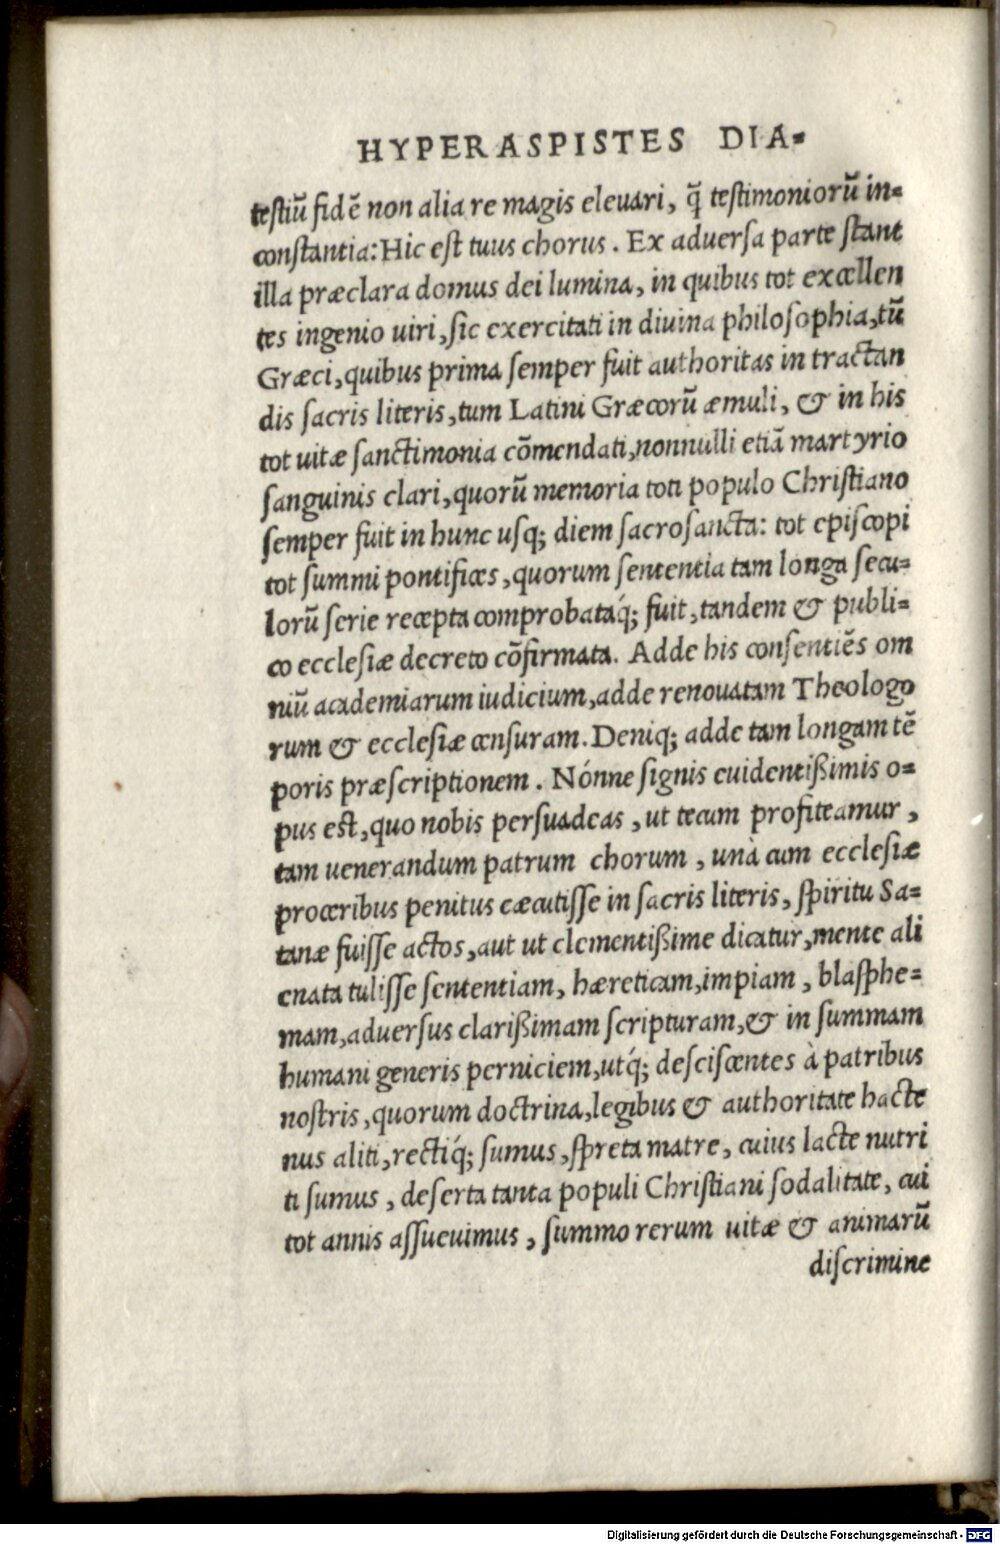 HYPERASPISTES DIA⸗
testiū fidē non alia re magis eleuari, q̄ testimoniorū in⸗
constantia: Hic est tuus chorus. Ex aduersa parte stant
illa præclara domus dei lumina, in quibus tot excellen
tes ingenio uiri, sic exercitati in diuina philosophia, tū
Græci, quibus prima semper fuit authoritas in tractan
dis sacris literis, tum Latini Græcorū æmuli, & in his
tot uitæ sanctimonia cōmendati, nonnulli etiā martyrio
sanguinis clari, quorū memoria toti populo Christiano
semper fuit in hunc usq; diem sacrosancta: tot episcopi
tot summi pontifices, quorum sententia tam longa secu⸗
lorū serie recepta comprobatáq; fuit, tandem & publi⸗
co ecclesiæ decreto cōfirmata. Adde his consentiēs om
niū academiarum iudicium, adde renouatam Theologo
rum & ecclesiæ censuram. Deniq; adde tam longam tē
poris præscriptionem. Nónne signis euidentißimis o⸗
pus est, quo nobis persuadeas, ut tecum profiteamur,
tam uenerandum patrum chorum, unà cum ecclesiæ
proceribus penitus cæcutisse in sacris literis, spiritu Sa⸗
tanæ fuisse actos, aut ut clementißime dicatur, mente ali
enata tulisse sententiam, hæreticam, impiam, blasphe⸗
mam, aduersus clarißimam scripturam, & in summam
humani generis perniciem, utq́; desciscentes à patribus
nostris, quorum doctrina, legibus & authoritate hacte
nus aliti, rectiq́; sumus, spreta matre, cuius lacte nutri
ti sumus, deserta tanta populi Christiani sodalitate, cui
tot annis assueuimus, summo rerum uitæ & animarū
discrimine
Digitalisierung gefördert durch die Deutsche Forschungsgemeinschaft - DFG